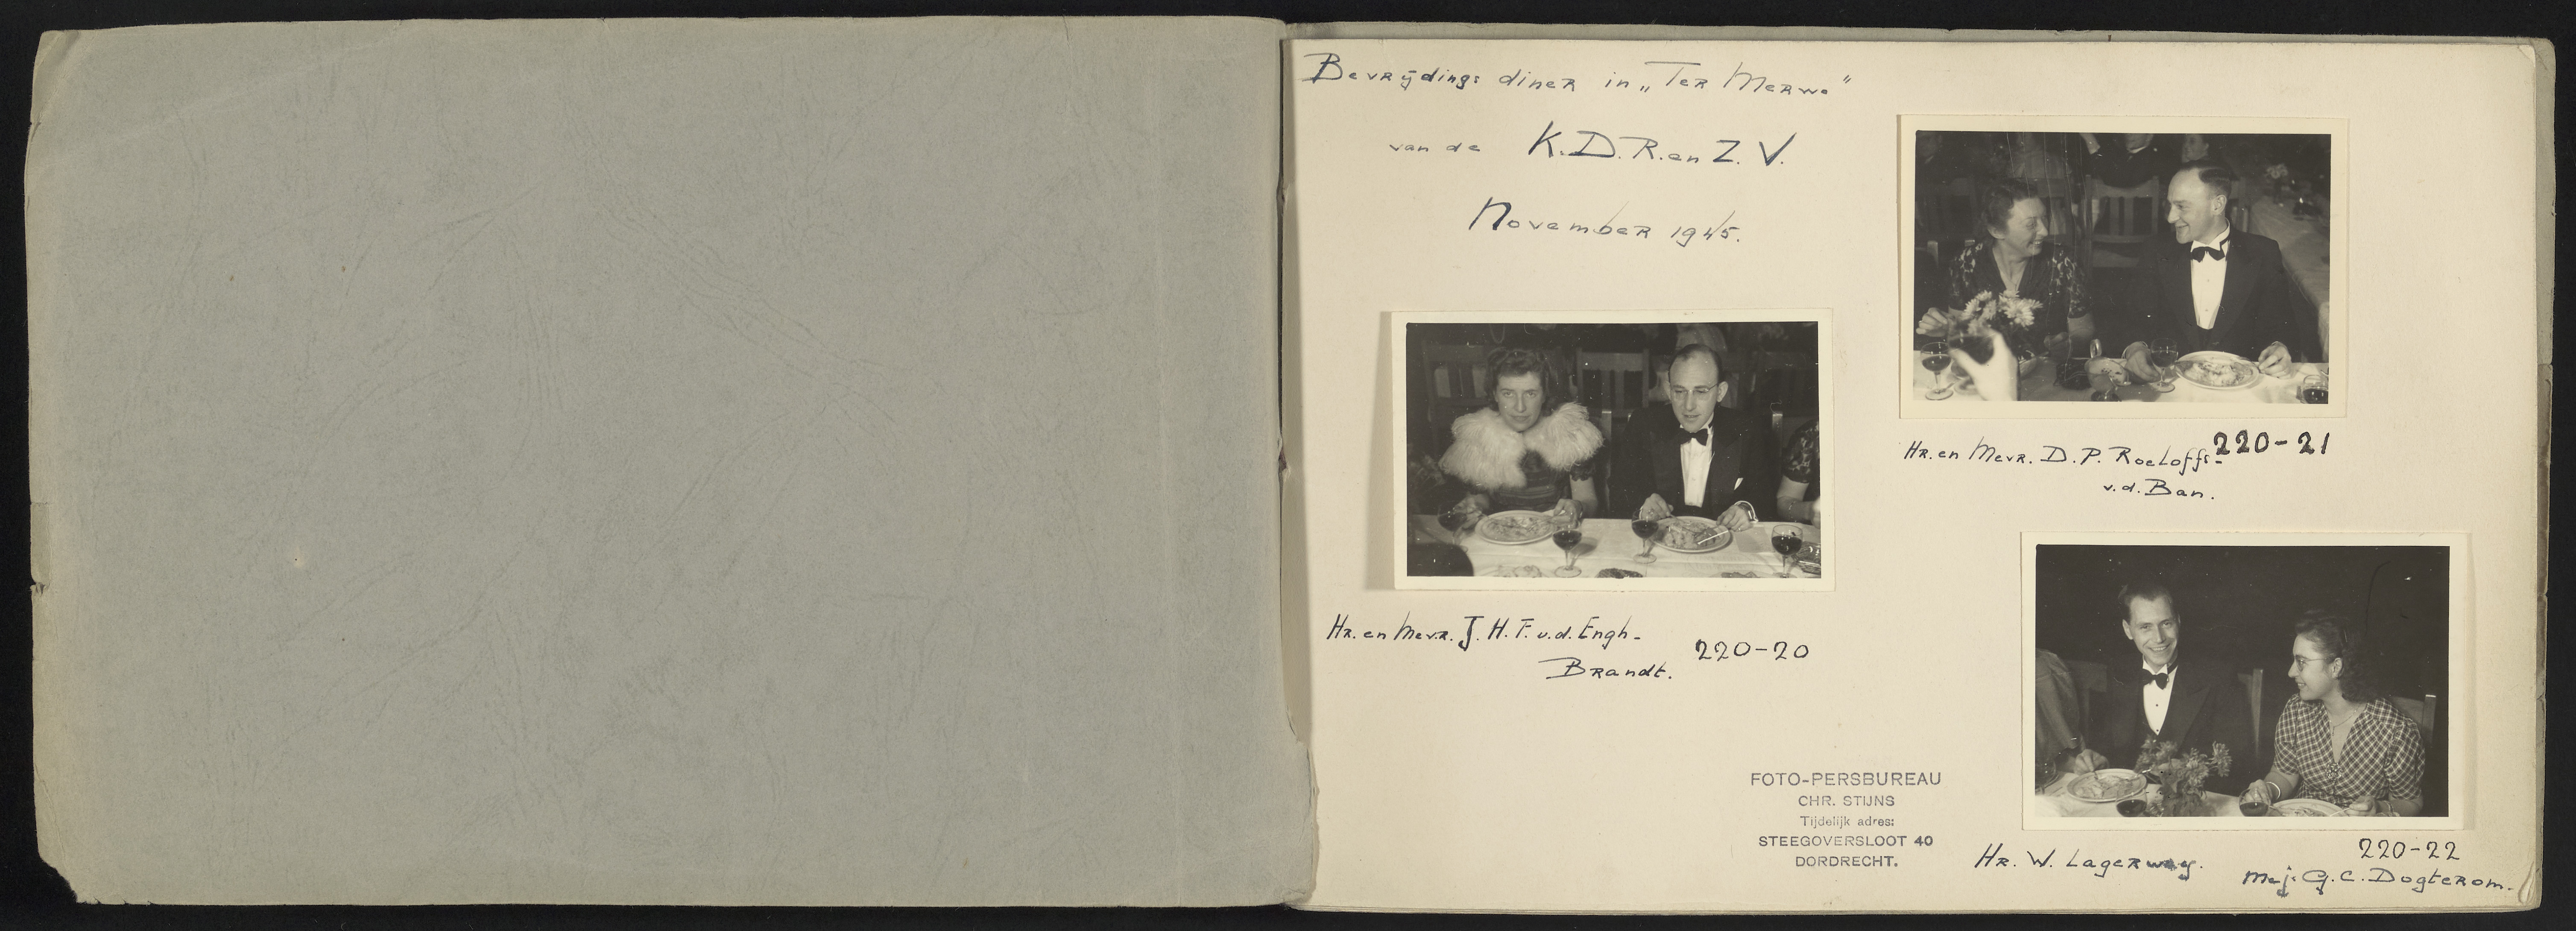 Bevrijdings diner in „Ter Merwe"
van de K.D.R.en Z.V.
November 1945.
Hr. en Mevr. D.P. Roeloffs-
v.d. Ban.
220-21
Hr. en Mevr. J.H.F. v.d. Engh-
Brandt.
220-20
FOTO-PERSBUREAU
CHR. STIJNS
Tijdelijk adres:
STEEGOVERSLOOT 40
DORDRECHT.
Hr. W. Lagerwey.
220-22
Mej: G.C. Dogterom.